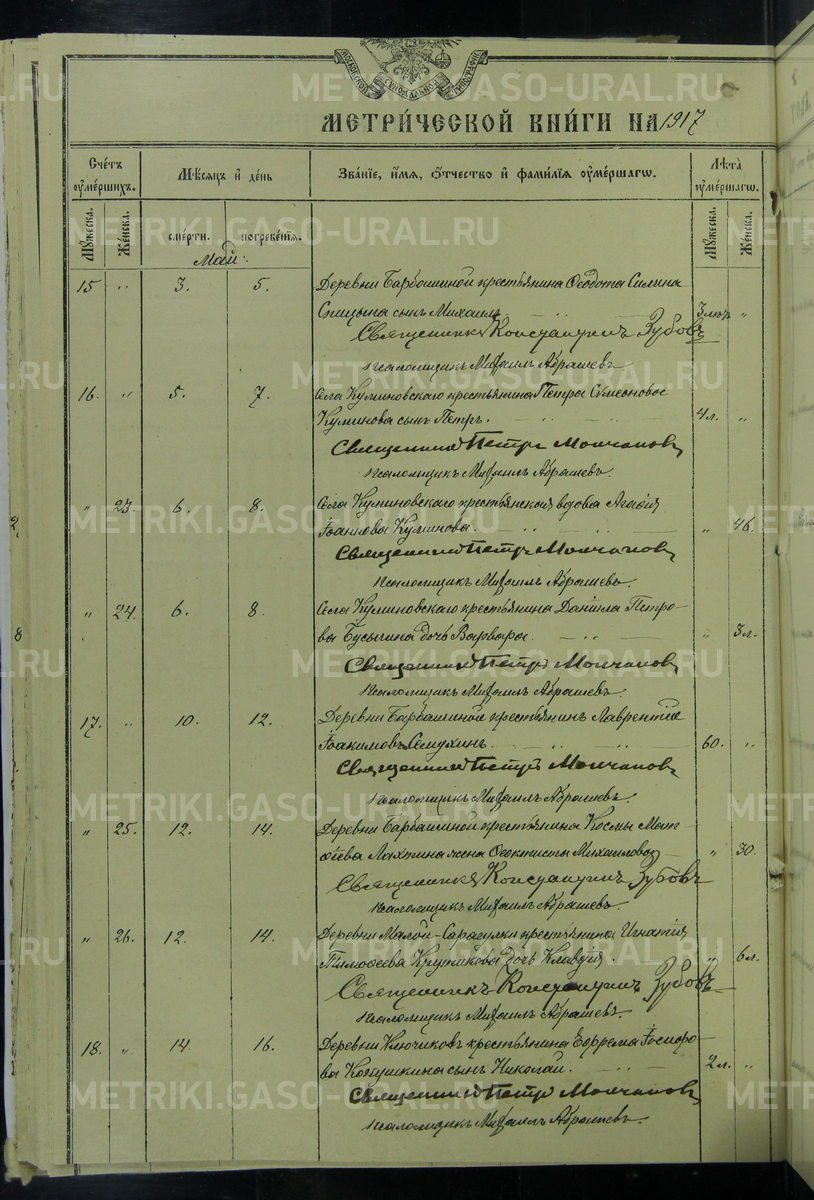 МОСКОВСКОЙ СѴНОДАЛЬНОЙ ТИПОГРАФІИ
МЕТРИ́ЧЕСКОЙ КНИ́ГИ НА 1917
Сче́тъ ᲂу҆ме́ршихъ.
Мѣ́сяцъ и҆ де́нь
Зва́нїе, и҆́мя, ѻ҆́тчество и҆ фами́лїя ᲂу҆ме́ршагѡ.
Лѣ́та ᲂу҆ме́ршагѡ.
Мꙋ́жеска.
Же́нска.
сме́рти.
погребе́нїя.
Мꙋ́жеска.
Же́нска.
Май:
15 " 3. 5. Деревни Барбашиной крестьянина Ѳеодота Силина
Спицына сынъ Михаилъ. "
Священникъ Константинъ Зубовъ
Псаломщикъ Михаилъ Абрашевъ
16. " 5. 7. Села Куминовскаго крестьянина Петра Сѵмеоновое
Куминова сынъ Петръ. 4 л. "
Священникъ Петръ Молчановъ
Псаломщикъ Михаилъ Абрашевъ.
" 23. 6. 8. Села Куминовскаго крестьянская вдова Агафія
Іоаннова Куминова. " 46.
Священникъ Петръ Молчановъ
Псаломщикъ Михаилъ Абрашевъ.
" 24. 6. 8. Села Куминовскаго крестьянина Даніила Петро-
ва Бусыгина дочь Варвара. " 3 л.
Священникъ Петръ Молчановъ
Псаломщикъ Михаилъ Абрашевъ.
17. " 10. 12. Деревни Барбашиной крестьянинъ Лаврентій
Іоакимовъ Семухинъ. 60. "
Священникъ Петръ Молчановъ
Псаломщикъ Михаилъ Абрашевъ.
" 25. 12. 14. Деревни Барбашиной крестьянина Космы Мат-
ѳѣева Лахтина жена Ѳеоктиста Михаилова " 30.
Священникъ Константинъ Зубовъ
Псаломщикъ Михаилъ Абрашевъ.
" 26. 12. 14. Деревни Малой-Сарагулки крестьянина Игнатія
Тимоѳеева Крутикова дочь Клавдія. " 6 л.
Священникъ Константинъ Зубовъ
Псаломщикъ Михаилъ Абрашевъ.
18. " 14. 16. Деревни Ключиковъ крестьянина Ефрема Іосифо-
ва Кокушкина сынъ Николай. 2 л. "
Священникъ Петръ Молчановъ
Псаломщикъ Михаилъ Абрашевъ.
METRIKI.GASO-URAL.RU